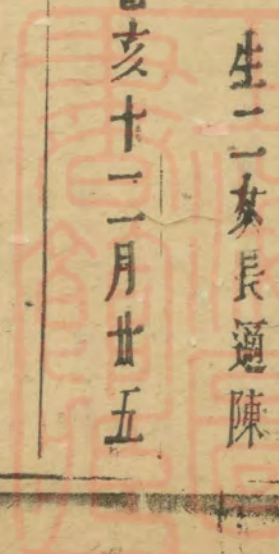 生二女長適陳
亥十二月廿五